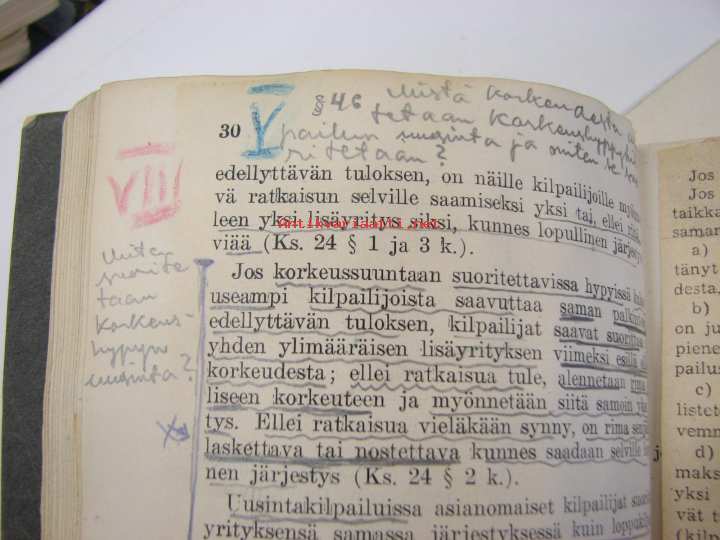 § 46 Mistä korkeudesta
tetaan korkeushyppyki
30 V pailun uusinta ja miten se
ritetaan?
edellyttävän tuloksen, on näille kilpailijoille myön
vä ratkaisun selville saamiseksi yksi tai, ellei
leen yksi lisäyritys siksi, kunnes lopullinen järjes
viää (Ks. 24 § 1 ja 3 k.).
VIII
Miten
suorite
taan
korkeus-
hypyn
uusinta?
Jos korkeussuuntaan suoritettavissa hypyissä
useampi kilpailijoista saavuttaa saman
edellyttävän tuloksen, kilpailijat saavat
yhden ylimääräisen lisäyrityksen viimeksi
korkeudesta; ellei ratkaisua tule, alennetaan rima
liseen korkeuteen ja myönnetään siitä samoin
tys. Ellei ratkaisua vieläkään synny, on rima
laskettava tai nostettava kunnes saadaan selville
nen järjestys (Ks. 24 § 2 k.).
Uusintakilpailuissa asianomaiset kilpailijat
yrityksensä samassa järjestyksessä kuin
Jos
Jos
taikka
saman
a)
tänyt
desta,
b)
on ju
piene
pailus
c)
listet
vemn
d)
maks
yksi
vät t
(kilp